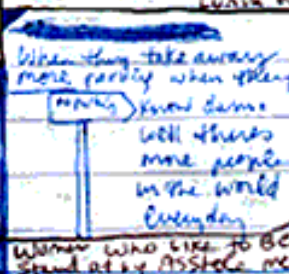 When they take away
more parking when they
parking know damn
well there's
more people
in the world
Everyday
Women who like to BE